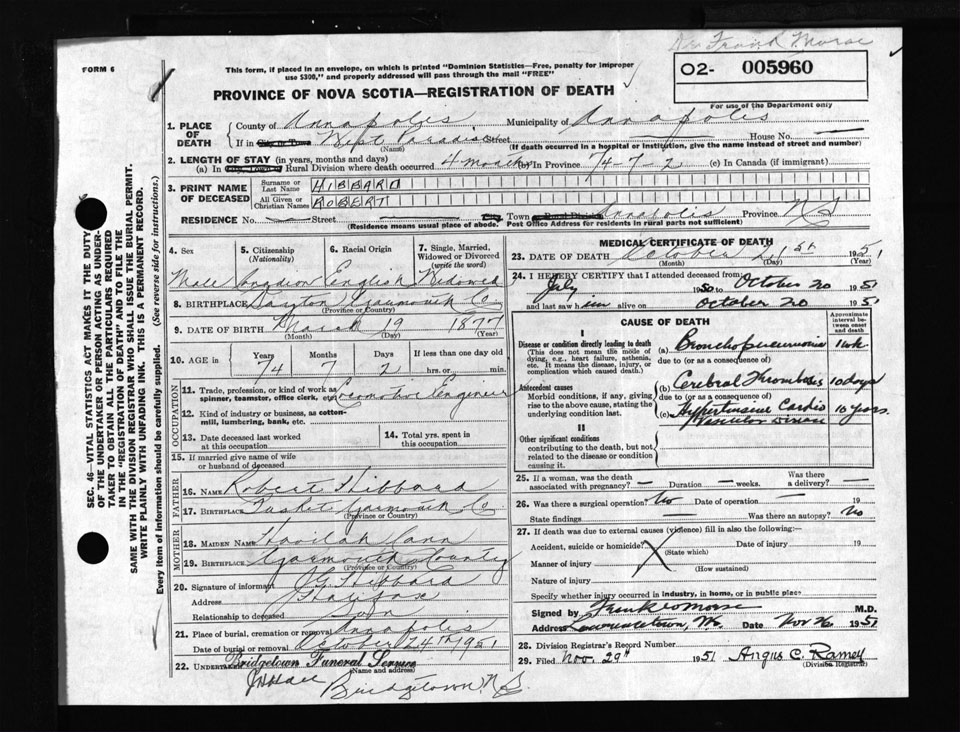 Dr. Frank Morse
FORM 6
This form, if placed in an envelope, on which is printed "Dominion Statistics—Free, penalty for improper
use $300," and properly addressed will pass through the mail "FREE"
PROVINCE OF NOVA SCOTIA—REGISTRATION OF DEATH
O2- 005960
For use of the Department only
1. PLACE OF DEATH
County of Annapolis Municipality of Annapolis
If in City or Town West Paradise Street — House No. —
(Name) (If death occurred in a hospital or institution, give the name instead of street and number)
2. LENGTH OF STAY (in years, months and days)
(a) In City, Town or Rural Division where death occurred 4 months (b) In Province 74-7-2 (c) In Canada (if immigrant)
3. PRINT NAME OF DECEASED
Surname or Last Name HIBBARD
All Given or Christian Names ROBERT
RESIDENCE No. — Street — City, Town or Rural Division Annapolis Province N S
(Residence means usual place of abode. Post Office Address for residents in rural parts not sufficient)
4. Sex 5. Citizenship (Nationality) 6. Racial Origin 7. Single, Married, Widowed or Divorced (write the word)
Male Canadian English Widowed
8. BIRTHPLACE Dayton Yarmouth Co
(Province or Country)
9. DATE OF BIRTH March 19 1877
(Month) (Day) (Year)
10. AGE in Years Months Days If less than one day old
74 7 2 hrs. or min.
OCCUPATION
11. Trade, profession, or kind of work as spinner, teamster, office clerk, etc. Locomotive Engineer
12. Kind of industry or business, as cotton-mill, lumbering, bank, etc.
13. Date deceased last worked at this occupation
14. Total yrs. spent in this occupation
15. If married give name of wife or husband of deceased
FATHER
16. NAME Robert Hibbard
17. BIRTHPLACE Tusket Yarmouth Co
(Province or Country)
MOTHER
18. MAIDEN NAME Havilah Cann
19. BIRTHPLACE Yarmouth County
(Province or Country)
20. Signature of informant J G Hibbard
Address Halifax
Relationship to deceased Son
21. Place of burial, cremation or removal Annapolis
Date of burial or removal October 24TH 1951
22. UNDERTAKER Bridgetown Funeral Service
(Name and address)
Bridgetown, N.S.
MEDICAL CERTIFICATE OF DEATH
23. DATE OF DEATH October 21st 1951
(Month) (Day) (Year)
24. I HEREBY CERTIFY that I attended deceased from
July 1950 to October 20 1951
and last saw him alive on October 20 1951
CAUSE OF DEATH
Approximate interval between onset and death
I
Disease or condition directly leading to death
(This does not mean the mode of dying, e.g., heart failure, asthenia, etc. It means the disease, injury, or complication which caused death.)
(a) Bronchopneumonia 1 wk.
due to (or as a consequence of)
Antecedent causes
Morbid conditions, if any, giving rise to the above cause, stating the underlying condition last.
(b) Cerebral Thrombosis 10 days
due to (or as a consequence of)
(c) Hypertensive Cardio Vascular Disease 10 years
II
Other significant conditions
contributing to the death, but not related to the disease or condition causing it.
25. If a woman, was the death associated with pregnancy? — Duration — weeks. Was there a delivery? —
26. Was there a surgical operation? No Date of operation — 19
State findings Was there an autopsy? No
27. If death was due to external causes (violence) fill in also the following:—
Accident, suicide or homicide? Date of injury 19
(State which)
Manner of injury
(How sustained)
Nature of injury
Specify whether injury occurred in industry, in home, or in public place
Signed by Frank Morse M.D.
Address Lawrencetown, N.S. Date Nov 26 1951
28. Division Registrar's Record Number
29. Filed Nov. 29th 1951 Angus C. Ramey
(Division Registrar)
SEC. 46—VITAL STATISTICS ACT MAKES IT THE DUTY
OF THE UNDERTAKER OR PERSON ACTING AS UNDER-
TAKER TO OBTAIN ALL THE PARTICULARS REQUIRED
IN THE "REGISTRATION OF DEATH" AND TO FILE THE
SAME WITH THE DIVISION REGISTRAR WHO SHALL ISSUE THE BURIAL PERMIT.
WRITE PLAINLY WITH UNFADING INK. THIS IS A PERMANENT RECORD.
Every item of information should be carefully supplied. (See reverse side for instructions.)